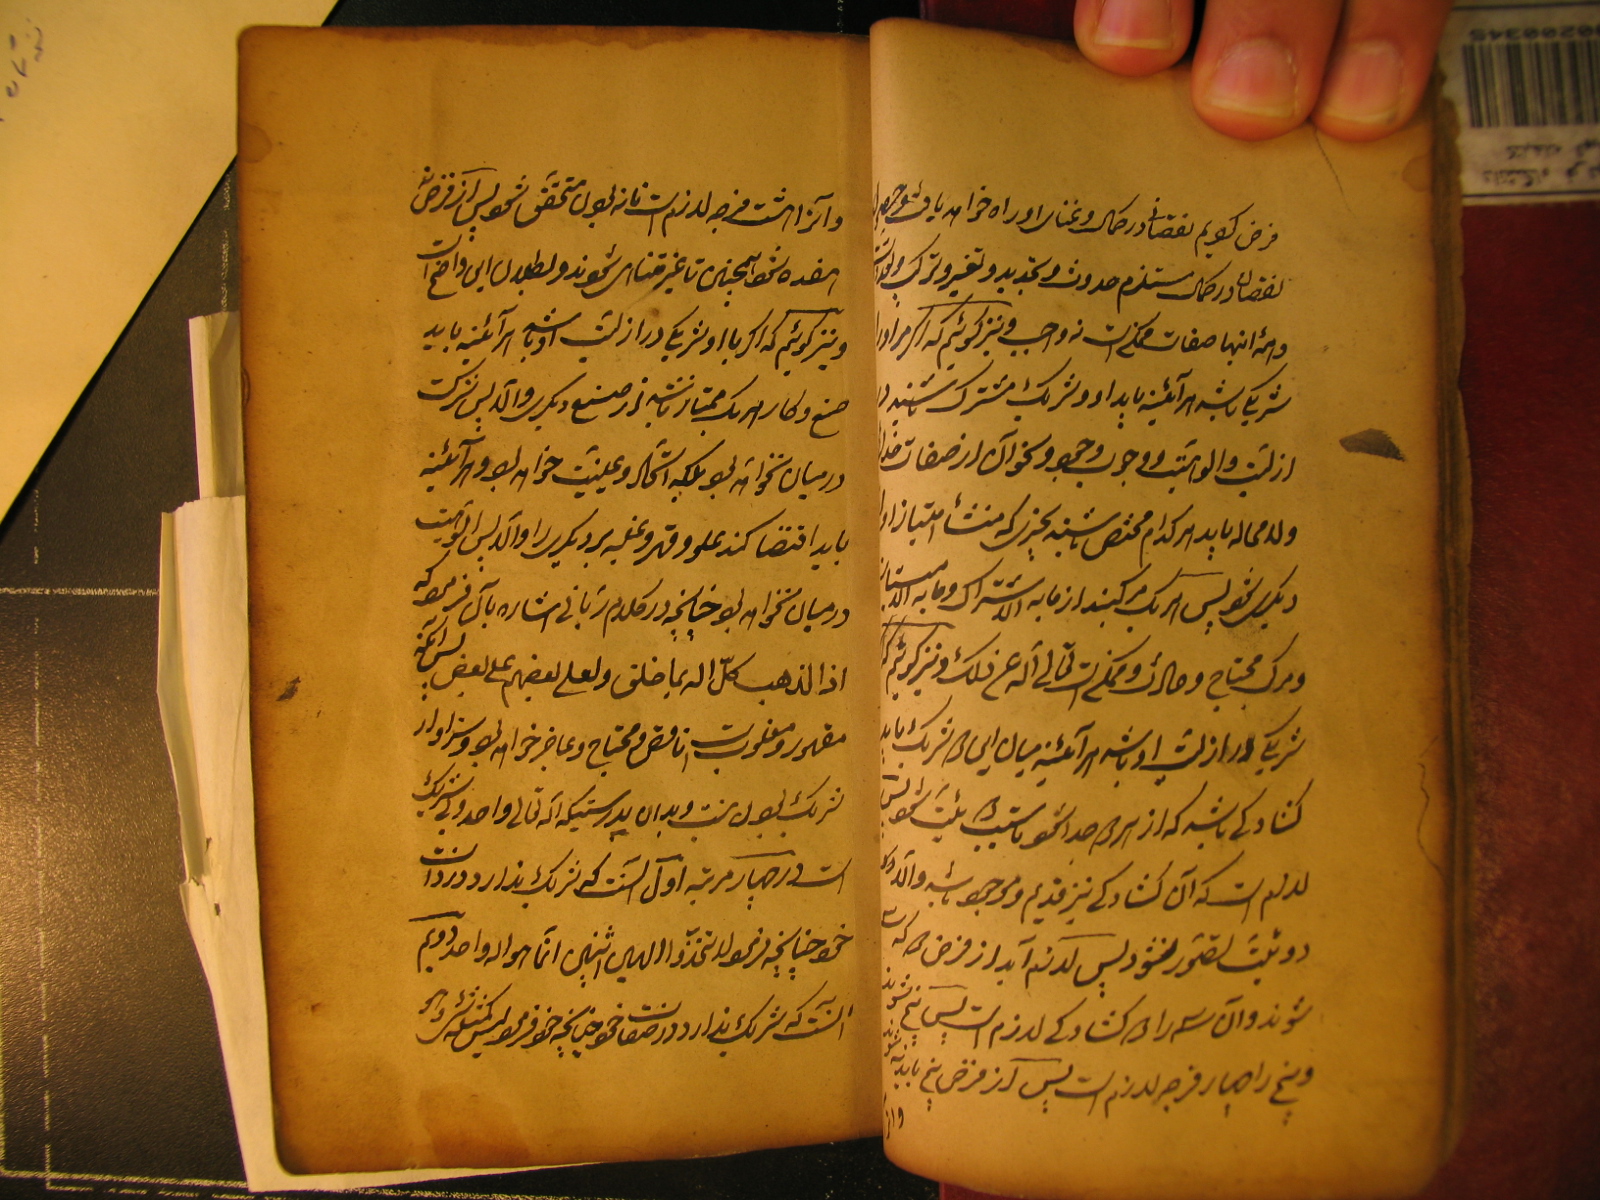 فرض کویم نقصان در کمال و غنای او راه خواهد یافت
نقصان در کمال مستلزم حدوث و تجدید و تغیر و ترک
و همهٔ انها صفات ممکن است نه واجب و نیز کوئیم که اکر مر او را
شریکی باشد هر آئینه باید او و شریک مشترک باشند در
ازلیت و الوهیت و وجوب وجود و نحو آن از صفات
ولا محاله باید هر کدام مختص باشند بچیزی که منشاء امتیاز او از
دیکری شود پس هر یک مرکبند از ما به الاشتراک و ما به الامتیاز
و مرکب محتاج و حادث و ممکن است تعالی الله عن ذلک و نیز کوئیم
شریکی در ازلیت او باشد هر آئینه میان این دو شریک باید
کشادکی باشد که از هم جدا شوند تا سبب دوئیت شود پس
لازم است که آن کشادکی نیز قدیم و موجود باشد و الا
دوئیت تصور نشود پس لازم آید از فرض دو که سه
شوند و آن سه را دو کشادکی لازم است پس پنج شوند
و پنج را چهار فرجه لازم است پس از فرض پنج باید نه شوند
و از
و از نه را هشت فرجه لازم است تا نه بودن متحقق شود پس از فرض نه
هفده شود همچنین تا غیر متناهی شوند و بطلان این واضح است
و نیز کوئیم که اکر با او شریکی در ازلیت او باشد هر آئینه باید
صنع و کار هر یک ممتاز باشد از صنع دیکری و الا پس شرکت
در میان نخواهد بود بلکه اتحاد و عینیت خواهد بود و هر آئینه
باید اقتضا کند علو و قهر و غلبه بر دیکری را و الا پس اثنویت
در میان نخواهد بود چنانچه در کلام ربانی اشاره بآن فرموده که
اذا لذهب کل اله بما خلق و لعلی بعضهم علی بعض پس آنکه
مقهور و مغلوبست ناقص و محتاج و عاجز خواهد بود و سزاوار
شریک بودن نیست و بدان بدرستیکه الله تعالی واحد و بی شریک
است در چهار مرتبه اول آنست که شریک ندارد در ذات
خود چنانچه فرمود لا تتخذوا الهین اثنین انما هو اله واحد دویم
آنست که شریک ندارد در صفات خود چنانچه خود فرمود لیس کمثله شیء